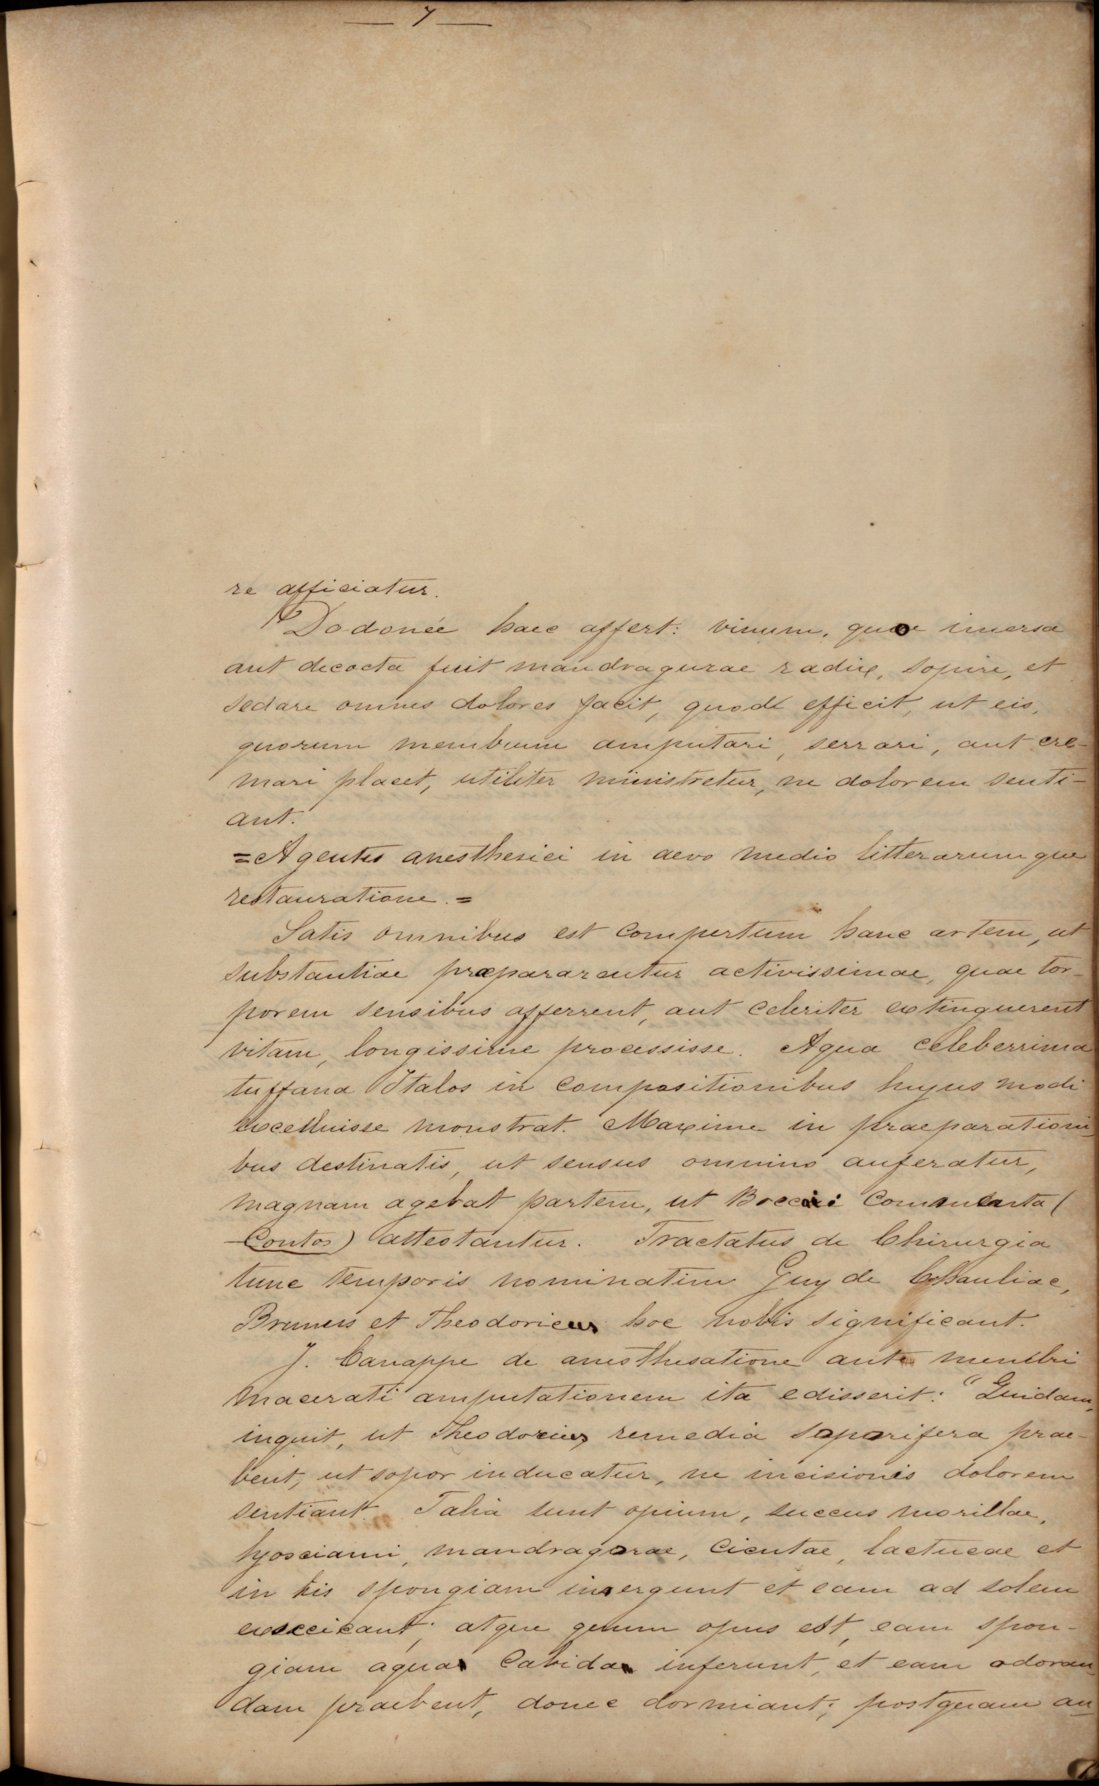 — 7 —
re afficiatur.
Dodonée haec affert: vinum, quo imersa
aut decocta fuit mandragurae radix, sopire, et
sedare omnes dolores facit, quod efficit, ut eis,
quorum membrum amputari, serrari, aut cre-
mari placet, utiliter ministretur, ne dolorem senti-
ant.
= Agentes anestherici in aevo medio litterarumque
restauratione. =
Satis omnibus est compertum hanc artem, ut
substantiae præpararentur activissimae, quae tor-
porem sensibus afferrent, aut celeriter extinguerent
vitam, longissime processisse. Aqua celeberrima
tuffana Italos in compositionibus hujus modi
excelluisse monstrat. Maxime in praeparationi
bus destinatis, ut sensus omnino auferatur,
magnam agebat partem, ut Boccaci commenta (
Contos) attestantur. Tractatus de Chirurgia
tunc temporis nominatim Guy de Chauliac,
Brunus et Theodoricus hoc nobis significant.
J. Canappe de anesthesatione ante membri
macerati amputationem ita edisserit: "Quidam,
inquit, ut Theodoricus remedia soporifera prae-
bent, ut sopor inducatur, ne incisionis dolorem
sentiant. Talia sunt opium, succus morillae,
hyosciami, mandragorae, cicutae, lactucae et
in his spongiam inmergunt et eam ad solem
exsiccicant; atque quum opus est, eam spon-
giam aqua calida inferunt, et eam odoran-
dam praebent, donec dormiant; postquam au